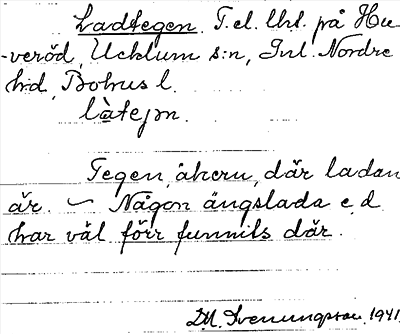 Ladtegen. T. el. lht. på Hu-
veröd, Ucklum s:n, Inl. Nordre
h:d, Bohus l.
làtejɒn.
Tegen, åkern, där ladan
är. ~ Någon ängslada e. d
har väl förr funnits där.
D.A. Svenungsson. 1941